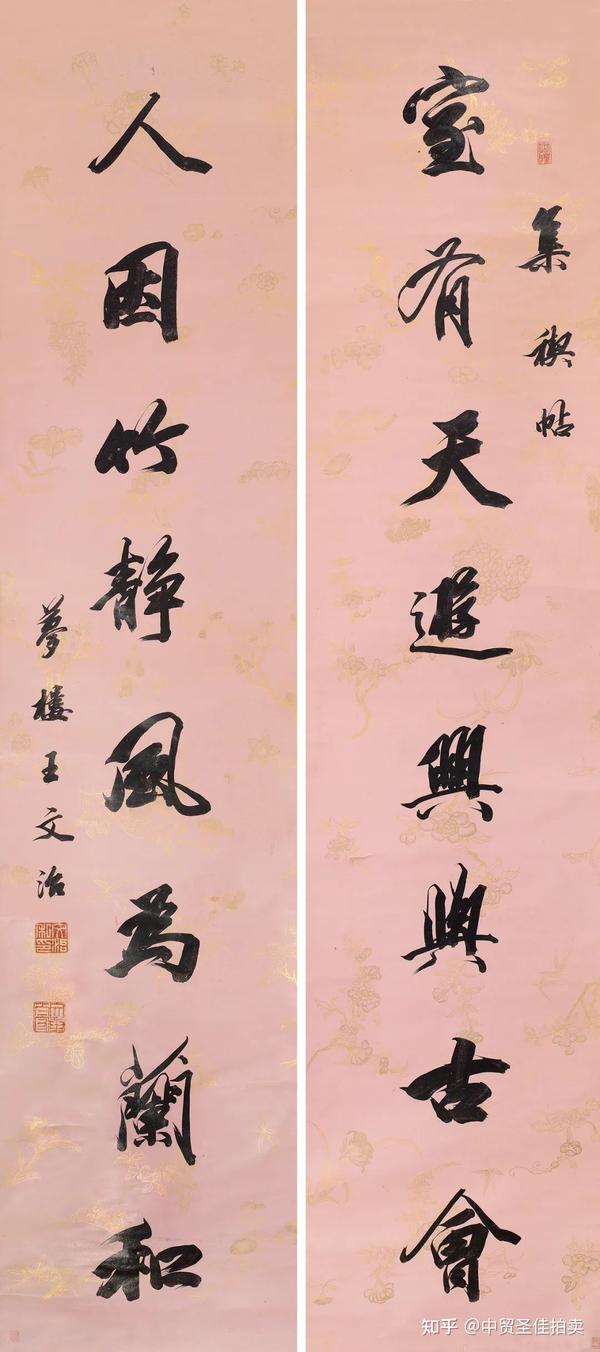 集禊帖
室有天遊興與古會
人因竹静風為蘭和
夢樓王文治
知乎 @中贸圣佳拍卖